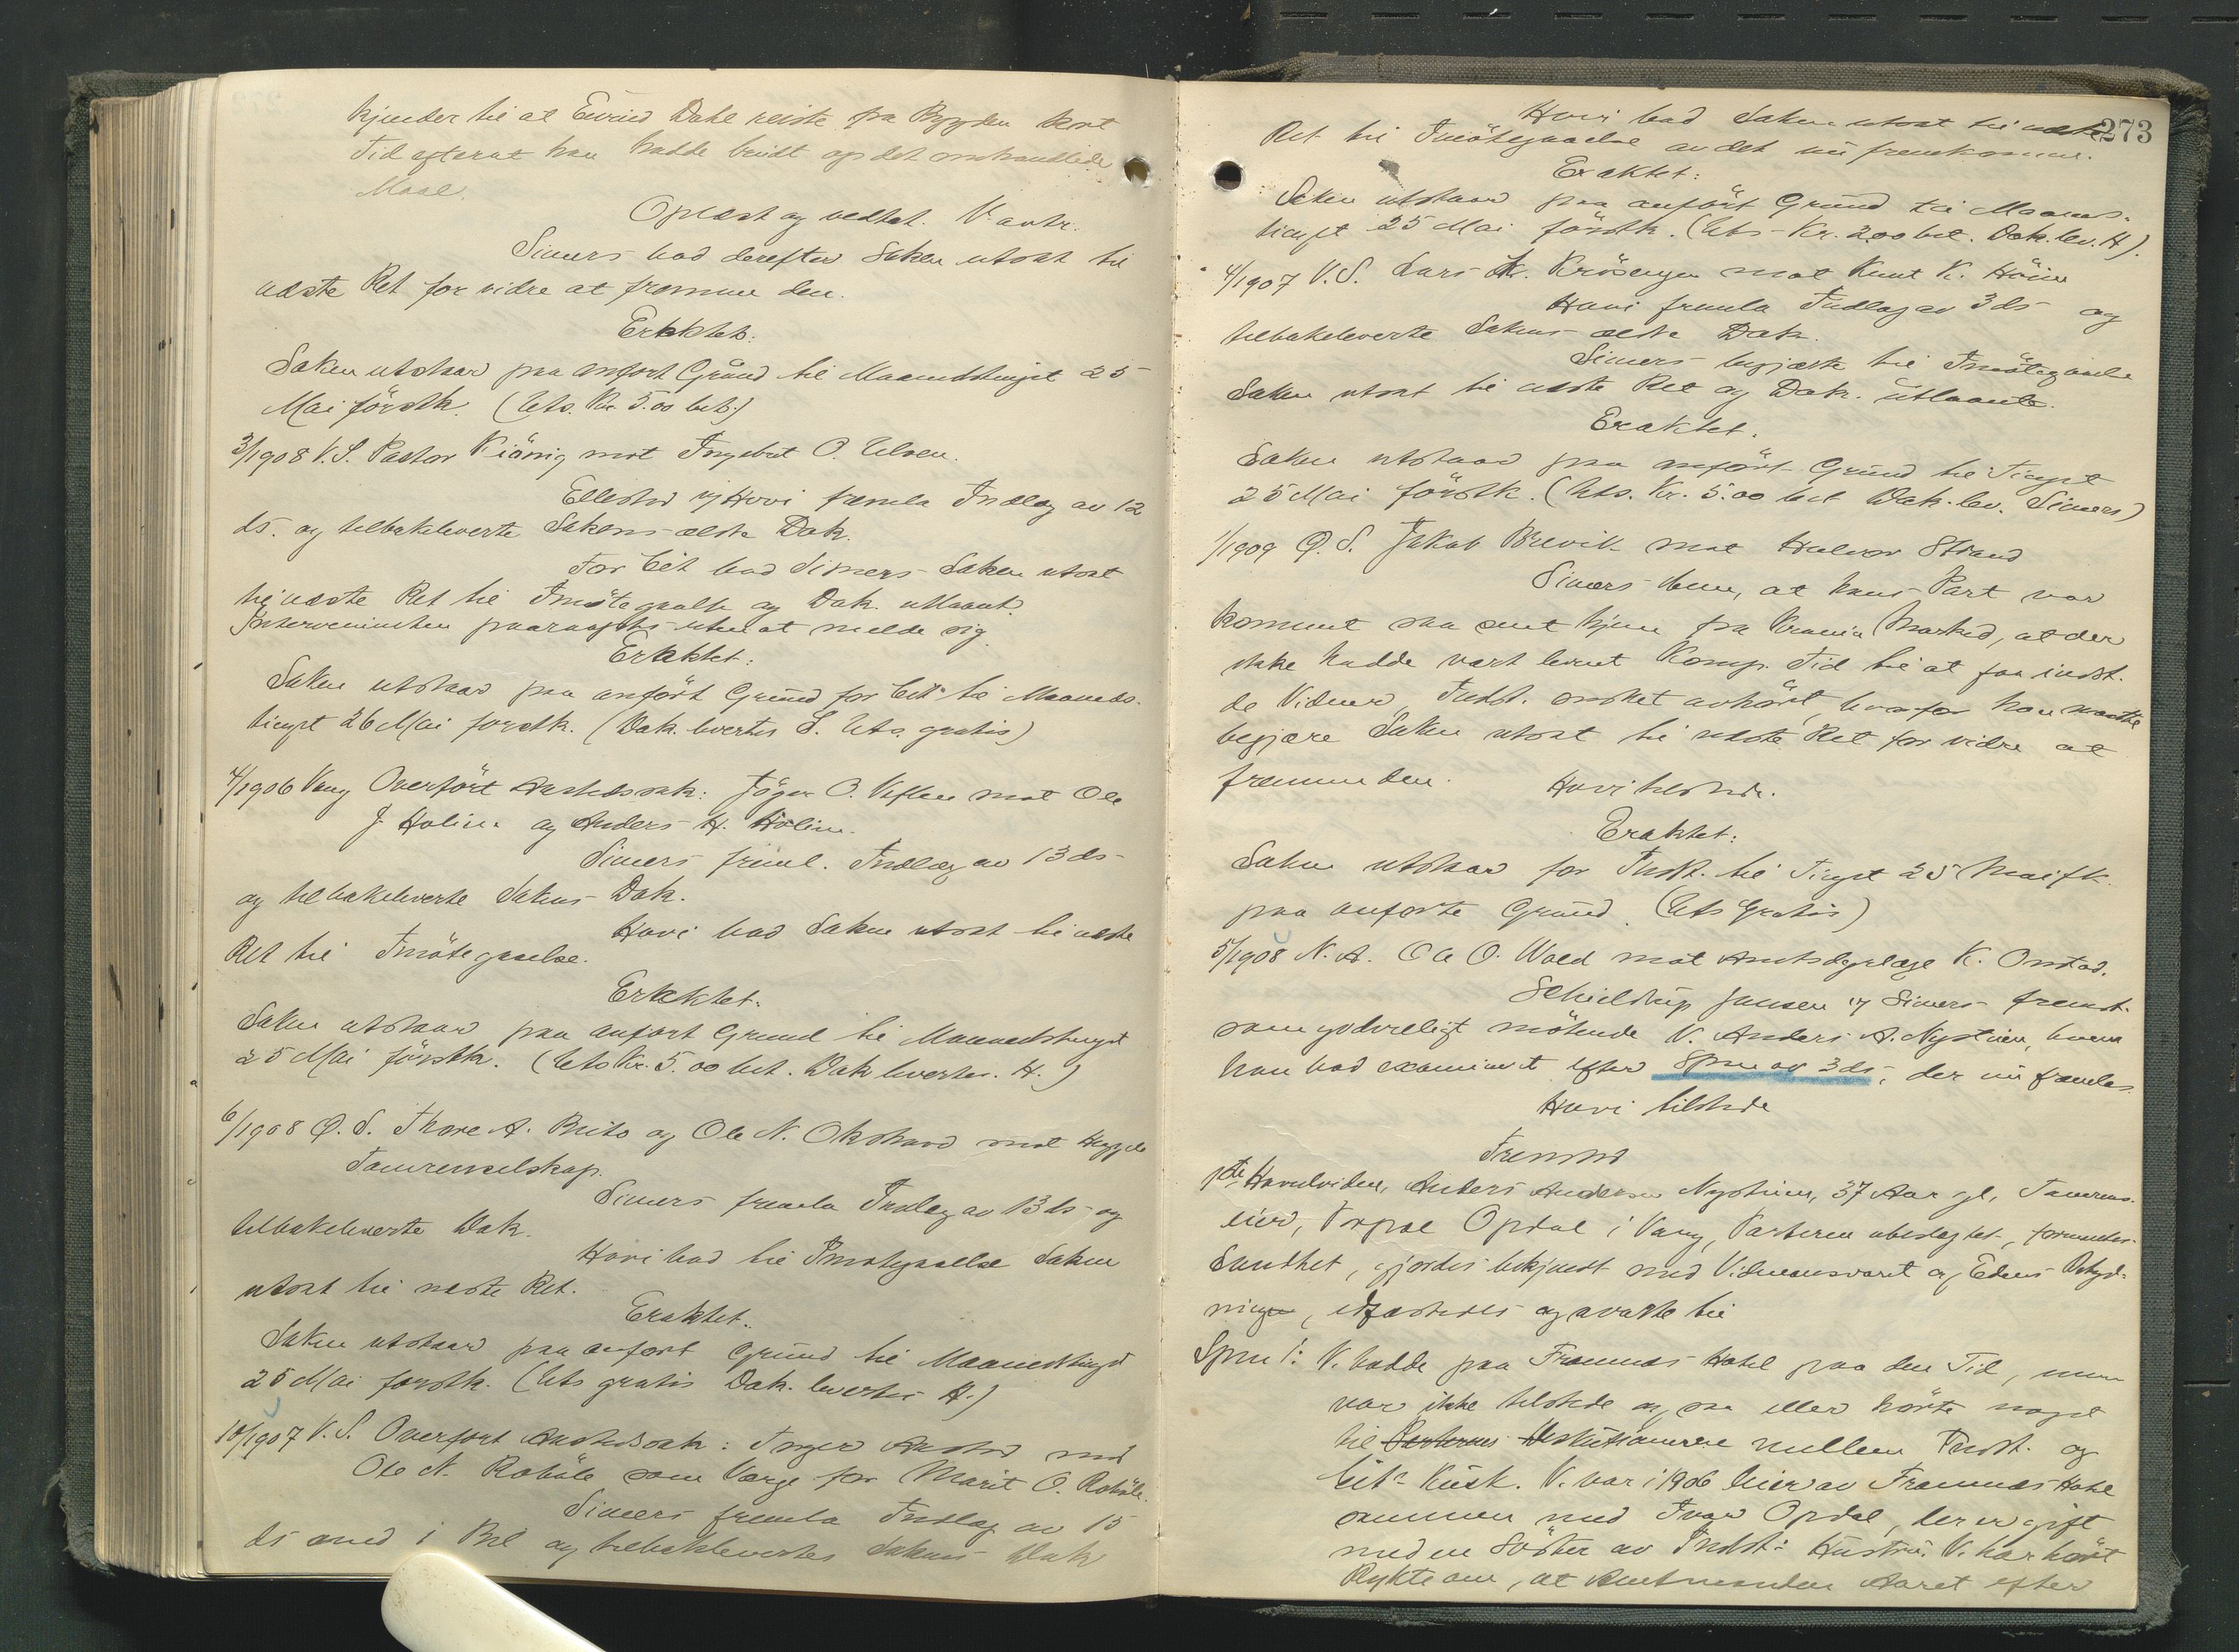 kjender til at Eivind Dahl reiste fra Bygden kort
Tid efterat han hadde brudt op det omhandlede
Maal.
Oplæst og vedtat. V. avtr.
Simers bad derefter Saken utsat til
næste Ret for vidre at fremme den.
Eraktet:
Saken utstaar paa anført Grund til Maanedstinget 25
Mai førstk. (Uts. Kr. 5.00 bet.)
3/1908 V.S. Pastor Kiönig mot Ingebret O. Ulven.
Ellestad v/ Hovi fremla Indlæg av 12
ds. og tilbakeleverte Sakens ældre Dok.
For Cit. bad Simers Saken utsat
til næste Ret til Imøtegaaelse og Dok. utlaant.
Intervenienten paaraaptes uten at melde sig.
Eraktet:
Saken utstaar paa anført Grund for Cit. til Maaneds-
tinget 26 Mai førstk. (Dok. levertes S. Uts. gratis)
4/1906 Vang Overført Aastedssak: Jöger O. Veflen mot Ole
J. Holien og Anders H. Holien.
Simers freml. Indlæg av 13 ds.
og tilbakeleverte Sakens Dok.
Hovi bad Saken utsat til næste
Ret til Imøtegaaelse.
Eraktet:
Saken utstaar paa anført Grund til Maanedstinget
25 Mai førstk. (Uts. Kr. 5.00 bet. Dok levertes H.)
6/1908 Ø.S. Thore A. Beito og Ole N. Okshovd mot Heggele
Tamrenselskap.
Simers fremla Indlæg av 13 ds. og
tilbakeleverte Dok.
Hovi bad til Imøtegaaelse Saken
utsat til næste Ret.
Eraktet:
Saken utstaar paa anført Grund til Maanedstinget
25 Mai førstk. (Uts gratis Dok. levertes H.)
10/1907 V.S. Overført Aastedssak: Inger Aastad mot
Ole N. Robøle som Værge for Marit O. Robøle.
Simers fremla Indlæg av 15
ds med 1 Bil og tilbakelevertes Sakens Dok
273
Hovi bad Saken utsat til næste
Ret til Imøtegaaelse av det nu fremkomne.
Eraktet:
Saken utstaar paa anført Grund til Maaneds-
tinget 25 Mai førstk. (Uts. Kr. 2.00 bet. Dok. lev. H).
4/1907 V.S. Lars K. Kröseng mot Knut K. Höine
Hovi fremla Indlæg av 3 ds og
tilbakeleverte Sakens ældre Dok.
Simers begjærte til Imøtegaaelse
Saken utsat til næste Ret og Dok. utlaante.
Eraktet:
Saken utstaar paa anført Grund til Tinget
25 Mai førstk. (Uts. Kr. 5.00 bet Dok. lev. Simers)
1/1909 Ø.S. Jakob Brevik mot Halvor Strand
Simers bem., at hans Part var
kommet saa sent hjem fra Marked, at der
ikke hadde vært levnet Komp. Tid til at faa indst.
de Vidner, Indst. ønsket avhørt, hvorfor han maatte
begjære Saken utsat til næste Ret for vidre at
fremme den.
Hovi tilstede.
Eraktet:
Saken utstaar for Indst. til Tinget 25 Mai fk.
paa anførte Grund. (Uts Gratis)
5/1908 N.A. Ole O. Wold mot Amtsdyrlæge K. Onstad.
Schieldrup Jensen v/ Simers fremst.
som godvilligt mötende V. Anders A. Nystuen, hvem
han bad examinert efter Spm av 3 ds., der nu fremlas
Hovi tilstede
Fremstod
1ste Hovedvidne, Anders Andersen Nystuen, 37 Aar gl., Tamrens-
eier, Torpsæ Opdal i Vang, Parterne ubeslægtet, formaner
Sandhet, gjordes bekjendt med Vidneansvaret og Edens Betyd-
ningen, edfæstedes og svarte til
Spm 1: V. bodde paa Framnæs Hotel paa den Tid, men
var ikke tilstede og saa eller hörte noget
til Parternes Diskusionerne mellem Indst. og
Cit.s Kusk. V. var i 1906 Leier av Framnæs Hotel
sammen med Ivar Opdal, der er gift
med en Søster av Indst.s Hustru. V. har hørt
Rykte om, at Amtmanden Aaret efter